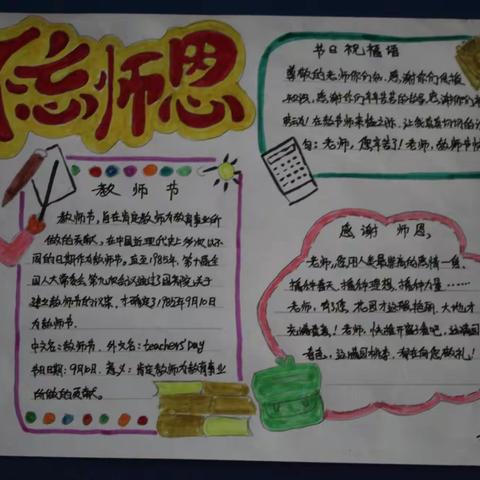 忘师恩
节日祝福语
尊敬的老师你们好,感谢你们
知识,感谢你们辛辛苦苦的
老师,您辛苦了!老师,教师节快
教师节
教师节,旨在肯定教师为教育事业所
做的贡献。在中国近现代史上多次以不
同的日期作为教师节,直至1985年,第六届全
国人大常委会第九次会议通过了国务院关于
建立教师节的议案,才确定了1985年9月10日
为教师节.
中文名:教师节. 外文名:teachers'Day
节日期:9月10日. 意义:肯定教师为教育事业
所做的贡献。
感谢师恩,
老师,您用人类最崇高的感情——爱,
播种春天、播种理想、播种力量……
老师,有了您,花园才这般艳丽,大地才
充满春意!老师,快推开窗子看吧,这满园
春色,这满园桃李,都在向您敬礼!